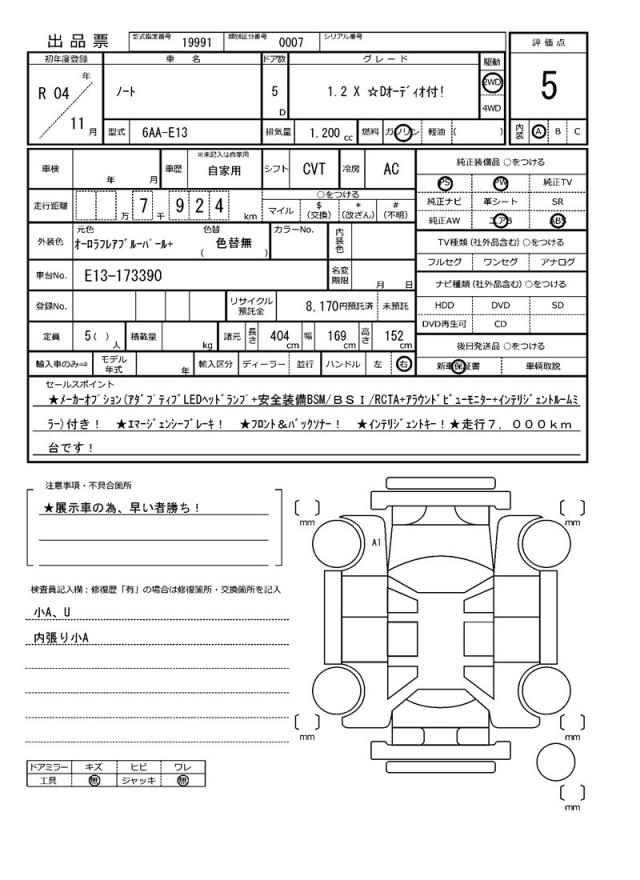 出品票 型式指定番号 19991 類別区分番号 0007 シリアル番号
評価点
5
内装 A B C
初年度登録 車名 ドア数 グレード 駆動
R 04 年 11 月
ノート 5 D 1.2 X ☆Dオーディオ付！ 2WD
4WD
型式 6AA-E13 排気量 1.200 cc 燃料 ガソリン 軽油 ( )
車検 年 月 車歴 ※未記入は自家用 自家用 シフト CVT 冷房 AC
走行距離 万 7 千 9 2 4 km
○をつける
マイル $(交換) *(改ざん) #(不明)
外装色 元色 オーロラフレアブルーパール+ 色替 ( 色替無 ) カラーNo. 内装色
車台No. E13-173390 名変期限 月 日
登録No. リサイクル預託金 8,170円預託済 未預託
定員 5( ) 人 積載量 kg 諸元 長さ 404 cm 幅 169 cm 高さ 152 cm
輸入車のみ⇒ モデル年式 年 輸入区分 ディーラー 並行 ハンドル 左 右
純正装備品 ○をつける
PS PW 純正TV
純正ナビ 革シート SR
純正AW エアB ABS
TV種類(社外品含む)○をつける
フルセグ ワンセグ アナログ
ナビ種類(社外品含む)○をつける
HDD DVD SD
DVD再生可 CD
後日発送品 ○をつける
新車保証書 車輌取説
セールスポイント
★メーカーオプション(アダプティブLEDヘッドランプ+安全装備BSM/BSI/RCTA+アラウンドビューモニター+インテリジェントルームミ
ラー)付き！ ★エマージェンシーブレーキ！ ★フロント&バックソナー！ ★インテリジェントキー！★走行7，000km
台です！
注意事項・不具合箇所
★展示車の為、早い者勝ち！
検査員記入欄：修復歴「有」の場合は修復箇所・交換箇所を記入
小A、U
内張り小A
ドアミラー キズ ヒビ ワレ
工具 無 ジャッキ 無
[ ] mm
[ ] mm
A1
[ ] mm
[ ] mm
[ ] mm